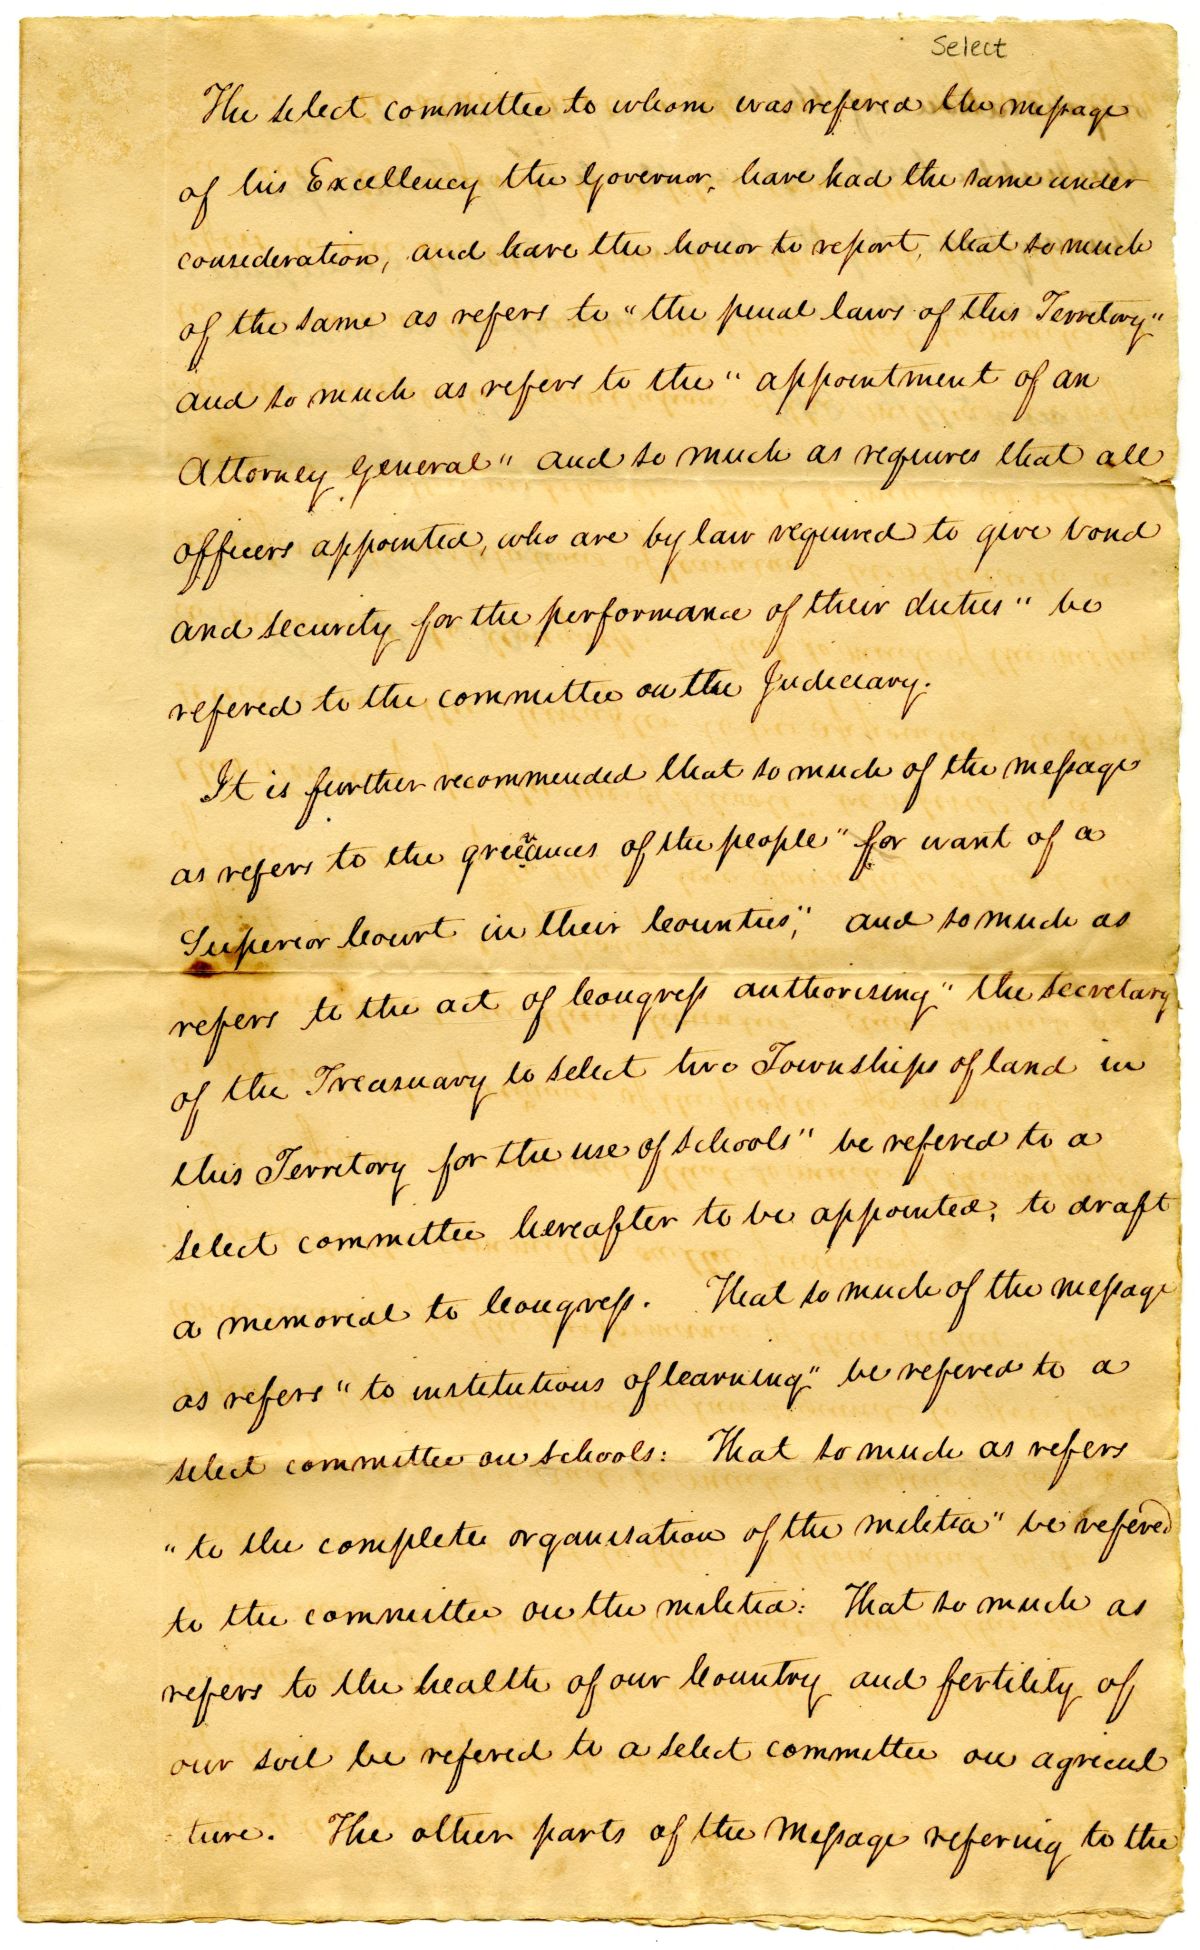 Select
The select committee to whom was refered the message
of his Excellency the Governor, have had the same under
consideration, and have the honor to report, that so much
of the same as refers to "the penal laws of this Territory"
and so much as refers to the "appointment of an
Attorney General" and so much as requires that all
officers appointed, who are by law required to give bond
and security for the performance of their duties" be
refered to the committee on the Judiciary.
It is further recommended that so much of the message
as refers to the grievances of the people "for want of a
Superior Court in their Counties," and so much as
refers to the act of Congress authorising "the Secretary
of the Treasuary to select two Townships of land in
this Territory for the use of schools" be refered to a
select committee hereafter to be appointed, to draft
a memorial to Congress. That so much of the message
as refers "to institutions of learning" be refered to a
select committee on schools: That so much as refers
"to the complete organisation of the militia" be refered
to the committee on the militia: That so much as
refers to the health of our Country and fertility of
our soil be refered to a select committee on agricul
ture. The other parts of the Message refering to the